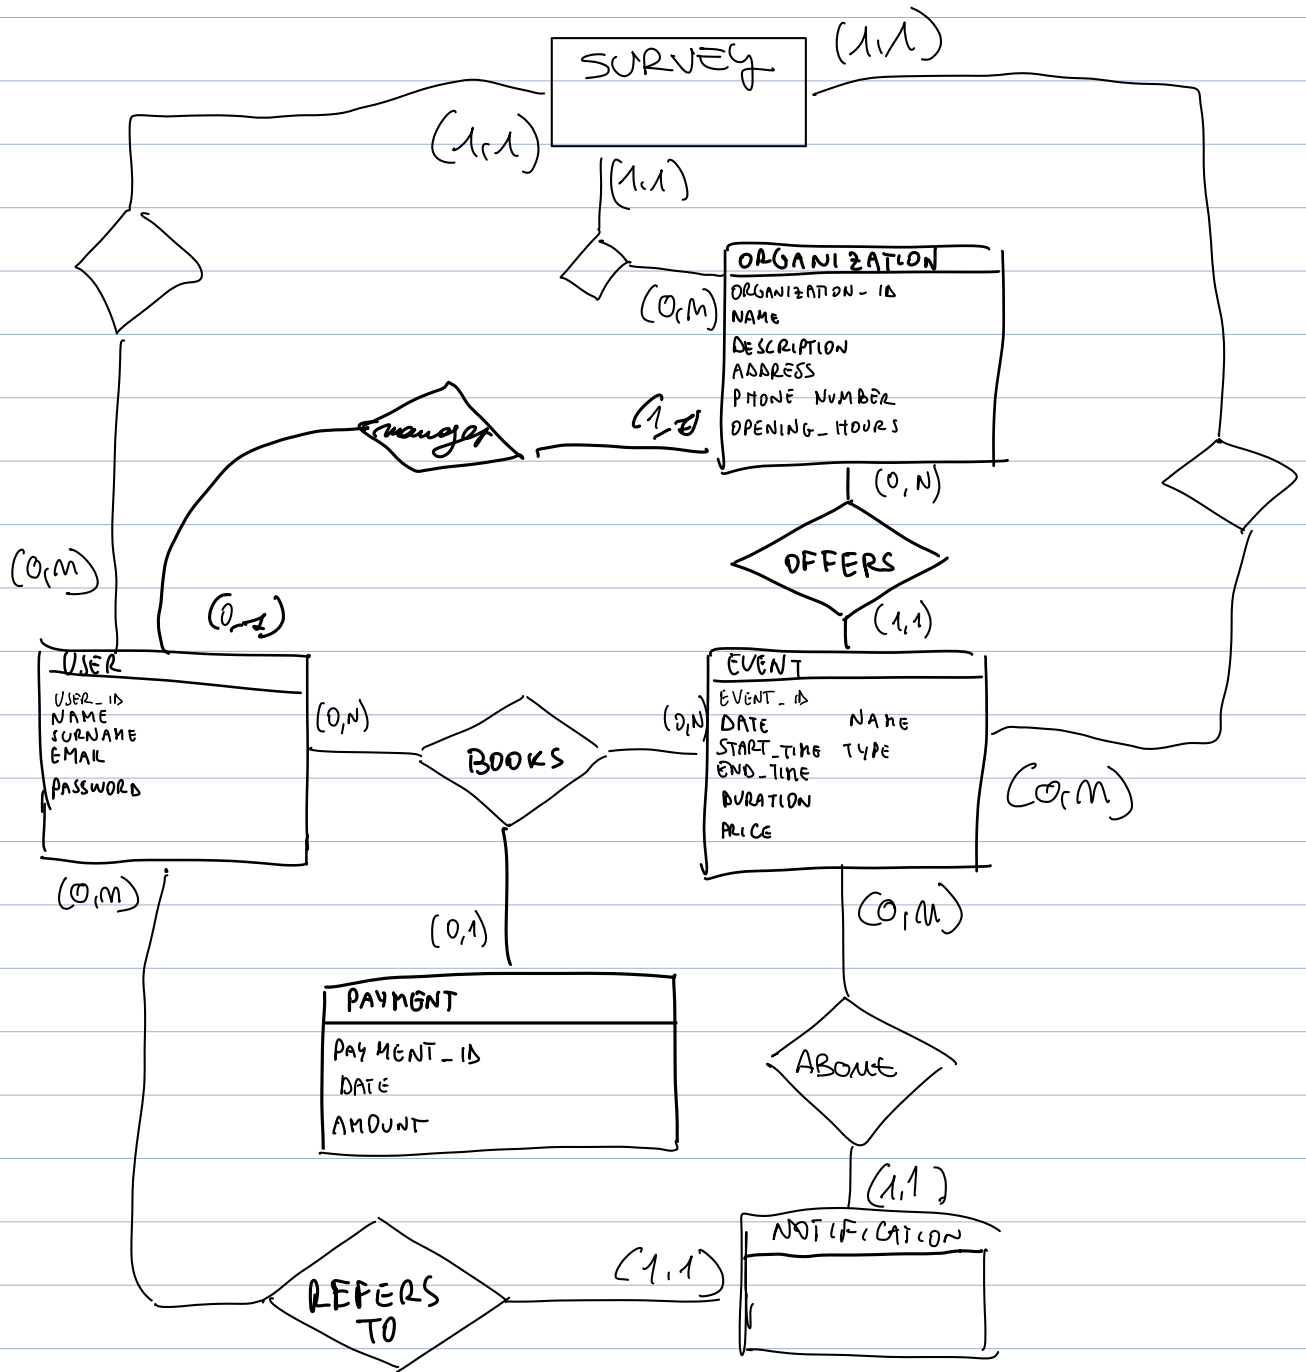 SURVEY
(1,1)
(1,1)
(1,1)
ORGANIZATION
ORGANIZATION_ID
NAME
DESCRIPTION
ADDRESS
PHONE NUMBER
OPENING_HOURS
(0,N)
manager
(1,
(0,N)
OFFERS
(1,1)
(0,N)
(0,1)
USER
USER_ID
NAME
SURNAME
EMAIL
PASSWORD
(0,N)
BOOKS
(0,N)
EVENT
EVENT_ID
DATE NAME
START_TIME TYPE
END_TIME
DURATION
PRICE
(0,N)
(0,N)
(0,1)
(0,N)
PAYMENT
PAYMENT_ID
DATE
AMOUNT
ABOUT
(1,1)
NOTIFICATION
(1,1)
REFERS
TO